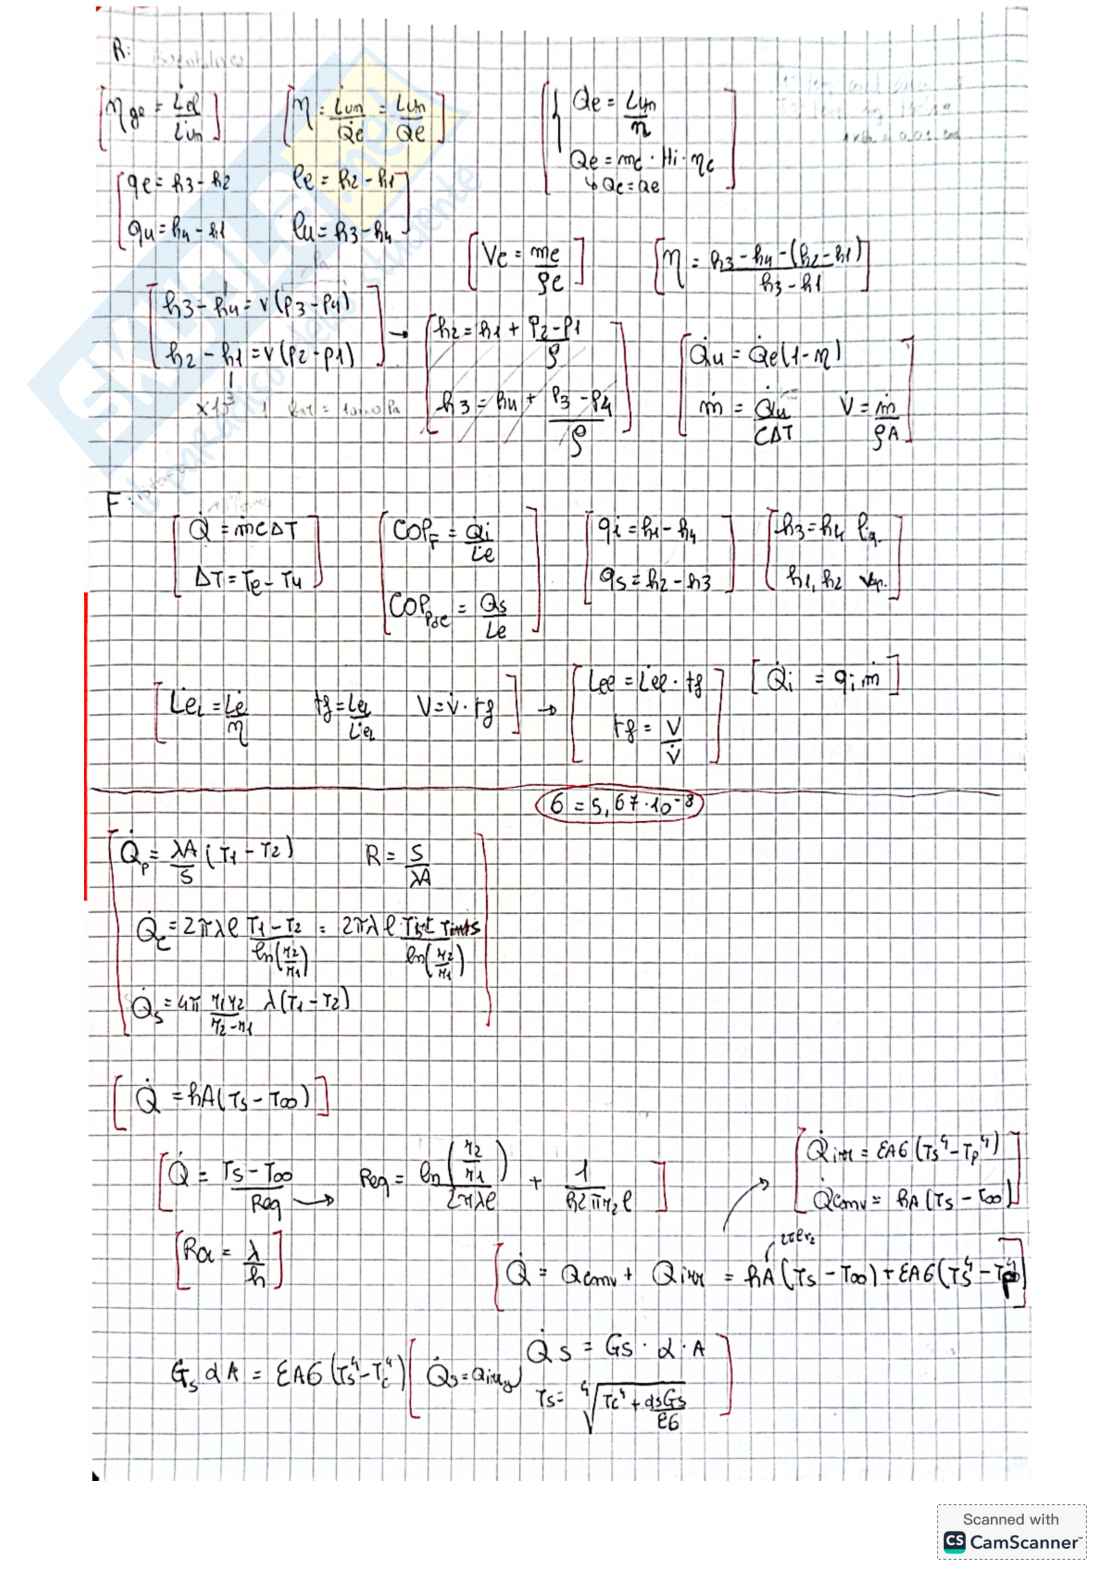 R:
η ge = L̇el / L̇un
η = L̇un / Q̇e = Lun / Qe
Qe = Lun / η
Qe = mc · Hi · ηc
↳ Qc = Qe
qe = h3 - h2 le = h2 - h1
qu = h4 - h1 lu = h3 - h4
Vc = mc / ρc
η = h3 - h4 - (h2 - h1) / h3 - h1
h3 - h4 = v (p3 - p4)
h2 - h1 = v (p2 - p1)
→ h2 = h1 + p2 - p1 / ρ
h3 = h4 + p3 - p4 / ρ
Q̇u = Q̇e (1 - η)
ṁ = Q̇u / CΔT V = ṁ / ρA
F:
Q̇ = ṁcΔT
ΔT = Te - Tu
COPF = Q̇i / L̇e
COPPdC = Q̇s / L̇e
qi = h1 - h4
qs = h2 - h3
h3 = h4 liq.
h1, h2 vap.
L̇el = L̇e / η tf = Lel / L̇el V = V̇ · tf
→ Lel = L̇el · tf
tf = V / V̇
Q̇i = qi ṁ
σ = 5,67 · 10⁻⁸
Q̇p = λA / s (T1 - T2) R = s / λA
Q̇c = 2πλl T1 - T2 / ln(r2/r1) = 2πλl / ln(r2/r1)
Q̇s = 4π r1r2 / r2-r1 λ(T1 - T2)
Q̇ = hA(Ts - T∞)
Q̇ = Ts - T∞ / Req → Req = ln(r2/r1) / 2πλl + 1 / h2πr2l
Q̇irr = εAσ (Ts⁴ - Tp⁴)
Q̇conv = hA (Ts - T∞)
Rcr = λ / h
2πlr2
Q̇ = Qconv + Q̇irr = hA (Ts - T∞) + εAσ (Ts⁴ - Tp⁴)
Gs α A = εAσ (Ts⁴ - Tc⁴) Q̇s = Qirr,s
Q̇s = Gs · α · A
Ts = ⁴√ Tc⁴ + αsGs / εσ
Scanned with
CS CamScanner